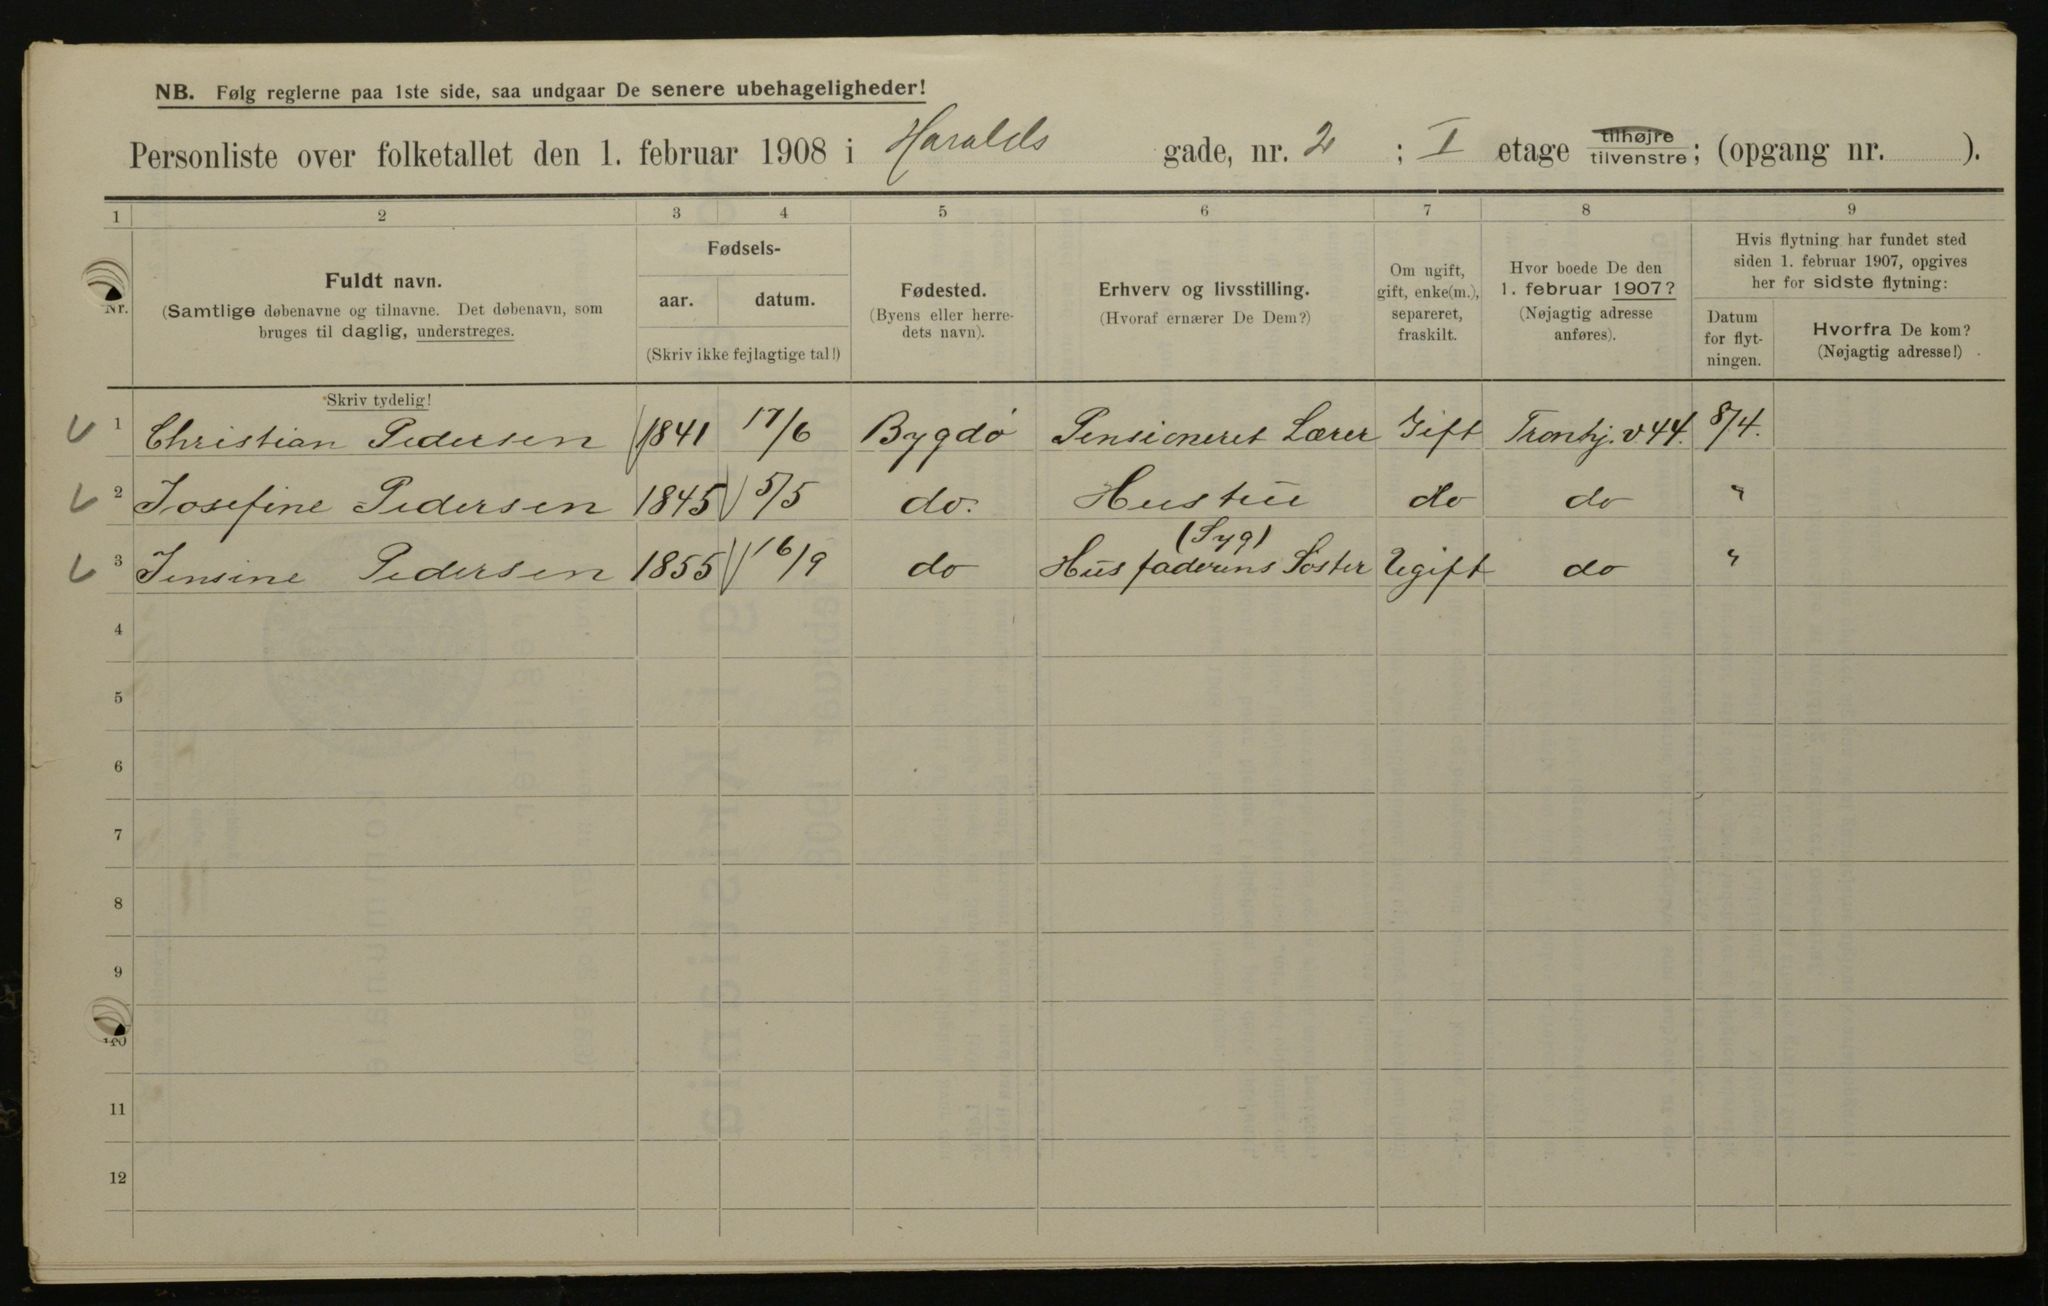 NB. Følg reglerne paa 1ste side, saa undgaar De senere ubehageligheder!
Personliste over folketallet den 1. februar 1908 i Haralds gade, nr. 2 ; I etage tilhøjre tilvenstre; (opgang nr. ).
1 2 3 4 5 6 7 8 9
Nr.
Fuldt navn.
(Samtlige døbenavne og tilnavne. Det døbenavn, som
bruges til daglig, understreges.
Fødsels-
aar. datum.
(Skriv ikke fejlagtige tal!)
Fødested.
(Byens eller herre-
dets navn).
Erhverv og livsstilling.
(Hvoraf ernærer De Dem?)
Om ugift,
gift, enke(m.),
separeret,
fraskilt.
Hvor boede De den
1. februar 1907?
(Nøjagtig adresse
anføres).
Hvis flytning har fundet sted
siden 1. februar 1907, opgives
her for sidste flytning:
Datum
for flyt-
ningen.
Hvorfra De kom?
(Nøjagtig adresse!)
Skriv tydelig!
1 Christian Pedersen 1841 17/6 Bygdø Pensioneret Lærer Gift Tronhj. v 44. 8/4.
2 Josefine Pedersen 1845 5/5 do. Hustru do do "
(Syg)
3 Jensine Pedersen 1855 16/9 do Husfaderens Søster Ugift do "
4
5
6
7
8
9
10
11
12